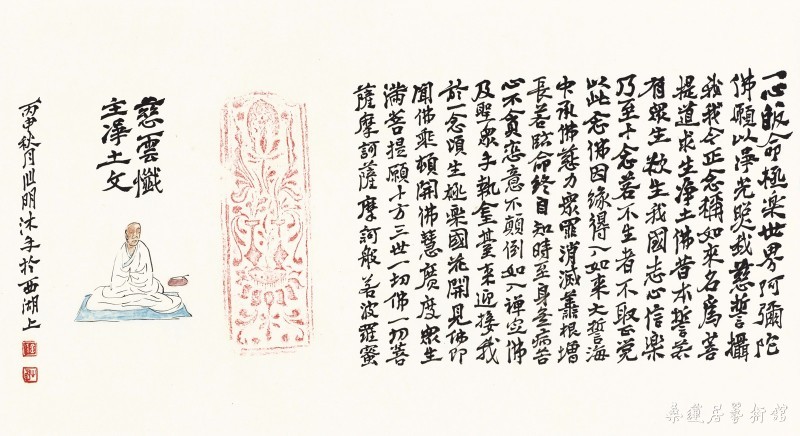 一心皈命極樂世界阿彌陀
佛願以淨光照我慈誓攝
我我今正念稱如來名為菩
提道求生淨土佛昔本誓若
有眾生欲生我國志心信樂
乃至十念若不生者不取正覺
以此念佛因緣得入如來大誓海
中承佛慈力眾罪消滅善根增
長若臨命終自知時至身無病苦
心不貪戀意不顛倒如入禪定佛
及聖眾手執金臺來迎接我
於一念頃生極樂國花開見佛即
聞佛乘頓開佛慧廣度眾生
滿菩提願十方三世一切佛一切菩
薩摩訶薩摩訶般若波羅蜜
慈雲懺
主淨土文
丙申秋月世明沐手於西湖上
桑蓮居藝術館